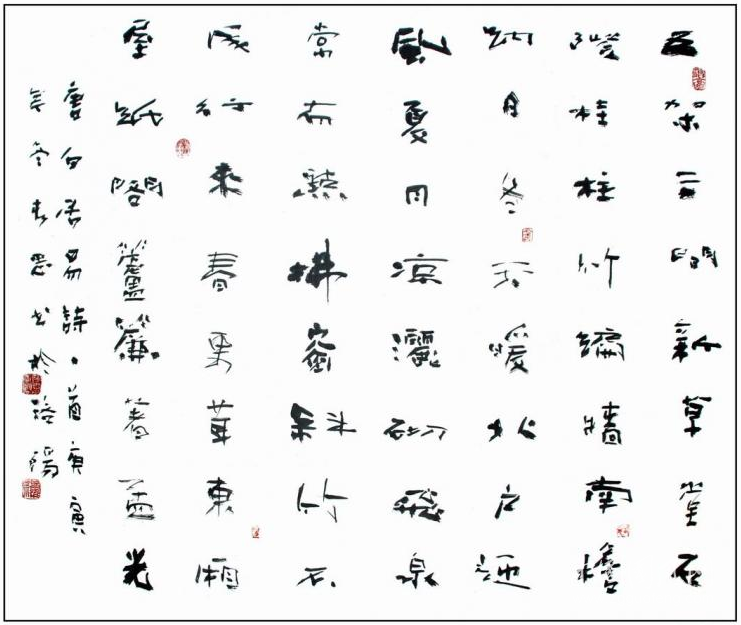 五架三間新草堂石
桂柱竹編牆南檐
納日冬天暖北户迎
風夏月凉灑砌飛泉
常有點拂窗斜竹不
成行來春更葺東廂
屋紙閣蘆簾著孟光
唐白居易詩一首庚寅
年冬书於洛陽